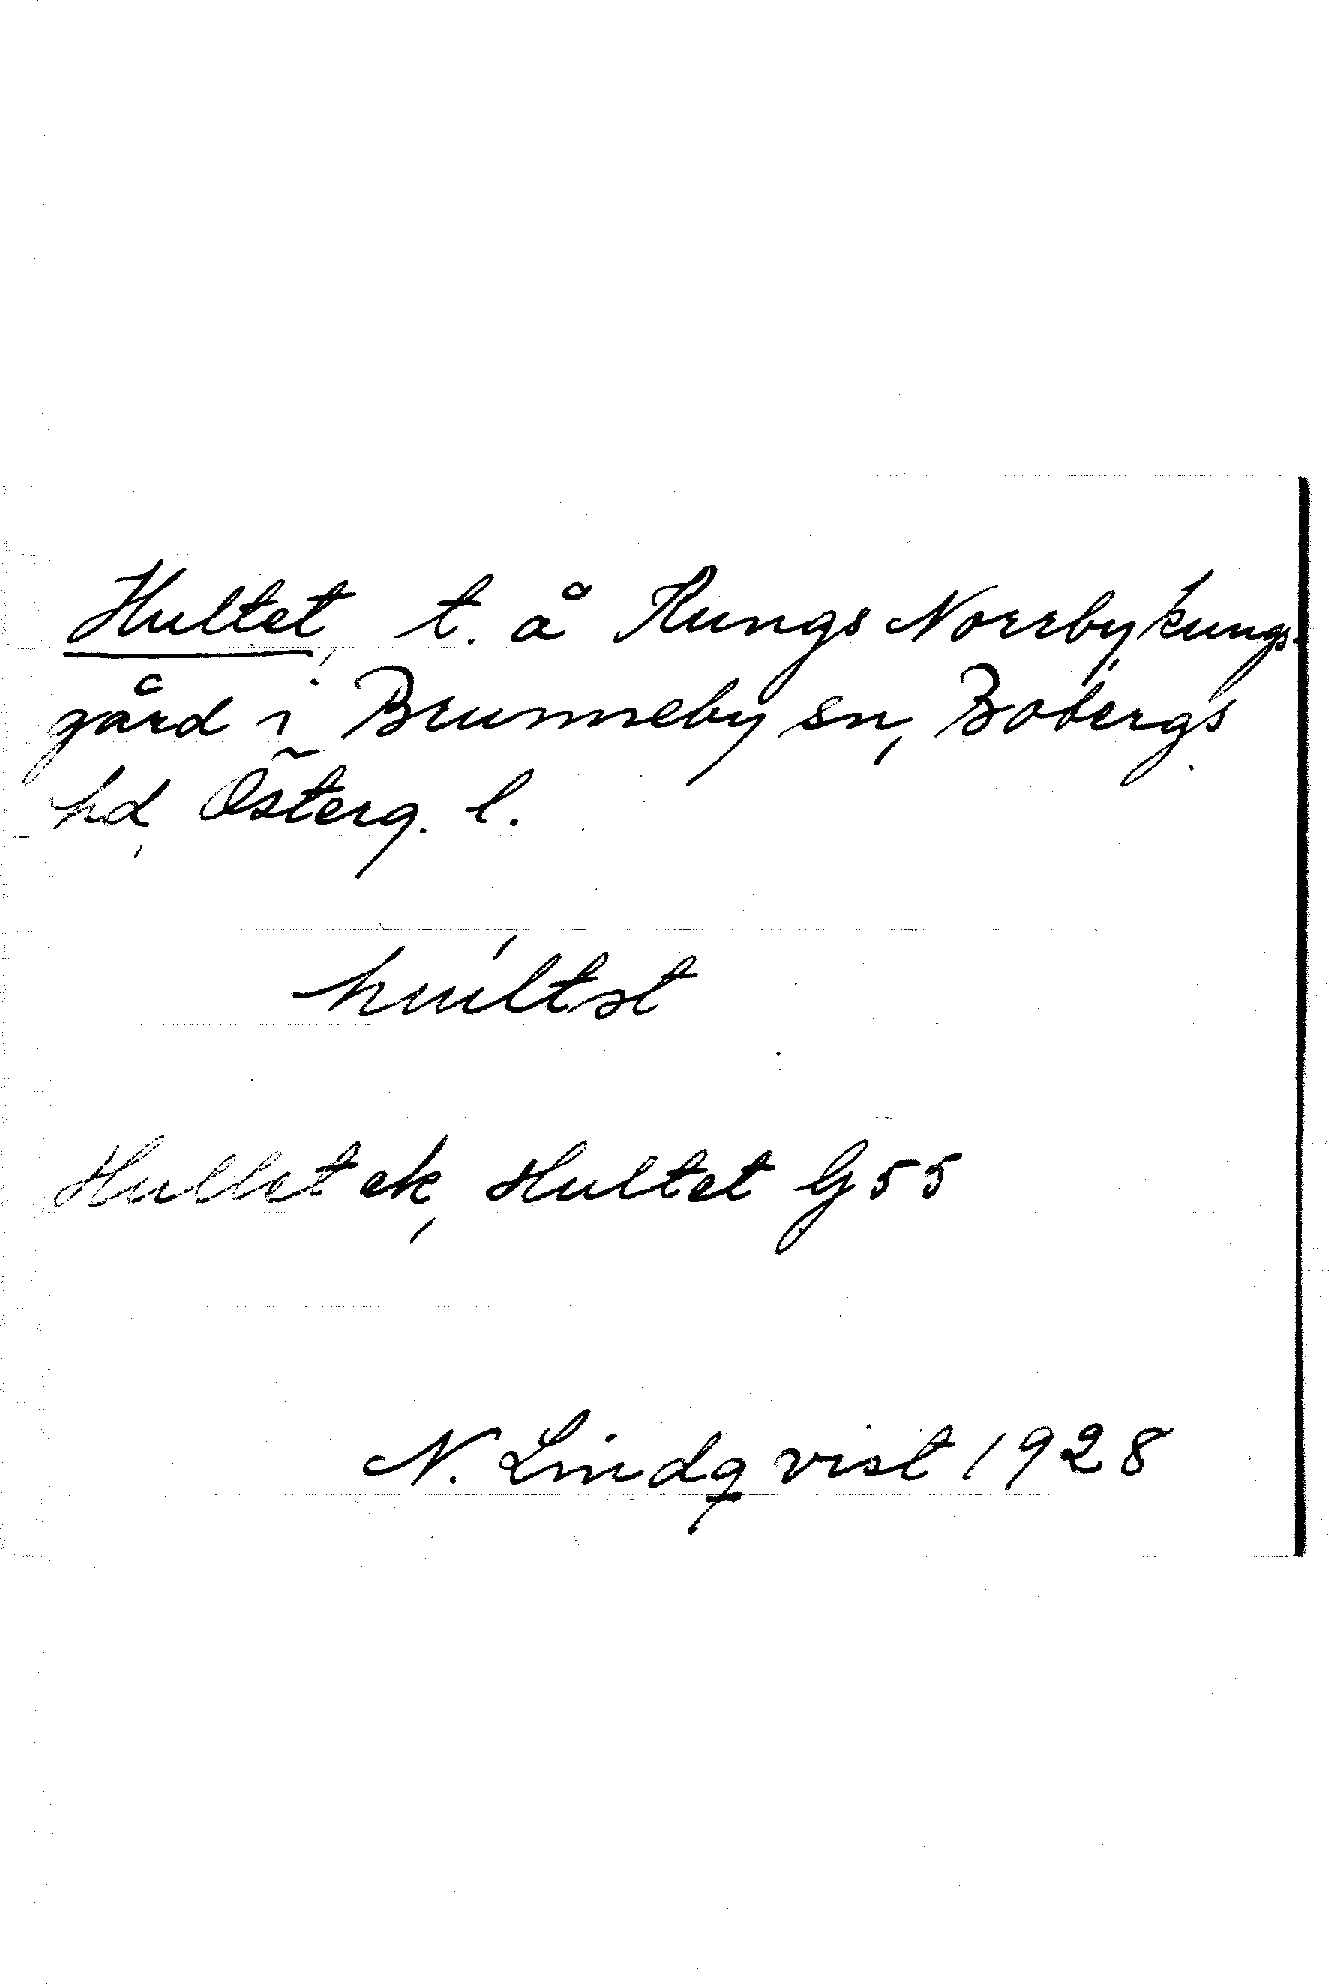 Hultet, t. å Kungs Norrby kungs-
gård i Brunneby sn, Bobergs
hd, Österg. l.
Hultet ek, Hultet G 55
N. Lindqvist 1928